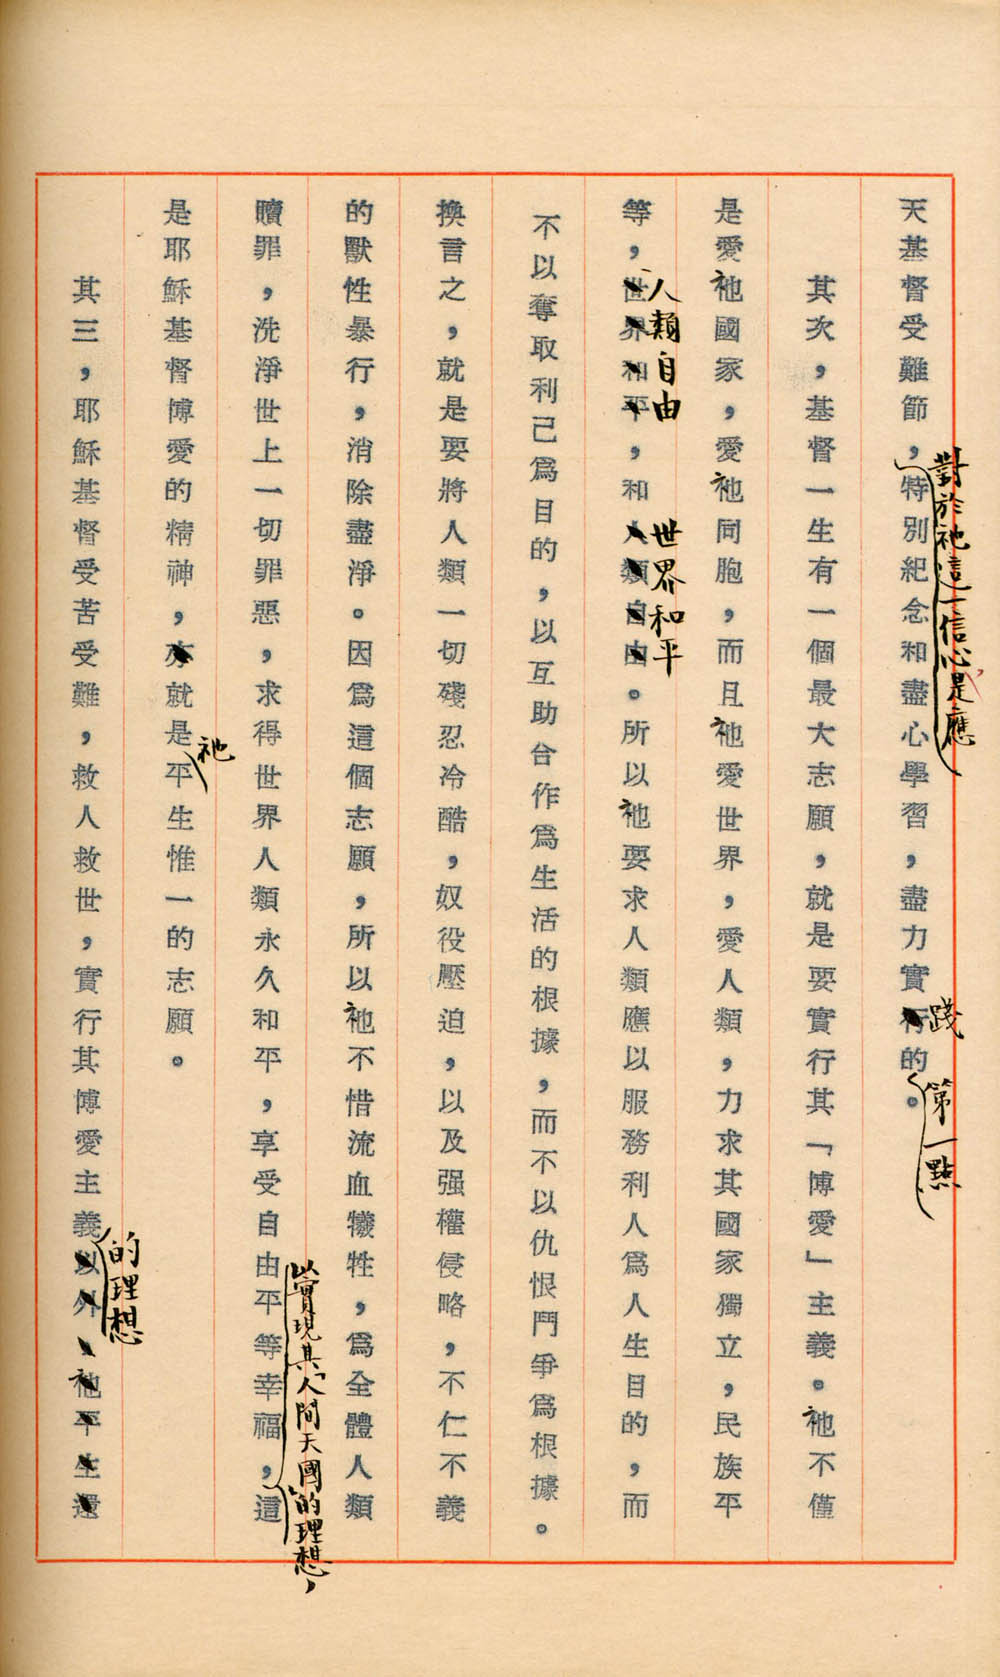 天基督受難節，特別紀念和盡心學習，盡力實行的。
對於祂這一信心是應
踐
第一點
其次，基督一生有一個最大志願，就是要實行其「博愛」主義。祂不僅
是愛祂國家，愛祂同胞，而且祂愛世界，愛人類，力求其國家獨立，民族平
等，世界和平，和人類自由。所以祂要求人類應以服務利人爲人生目的，而
人類自由
世界和平
不以奪取利己爲目的，以互助合作爲生活的根據，而不以仇恨鬥爭爲根據。
換言之，就是要將人類一切殘忍冷酷，奴役壓迫，以及强權侵略，不仁不義
的獸性暴行，消除盡淨。因爲這個志願，所以祂不惜流血犧牲，爲全體人類
贖罪，洗淨世上一切罪惡，求得世界人類永久和平，享受自由平等幸福，這
以實現其「人間天國」的理想，
是耶穌基督博愛的精神，亦就是平生惟一的志願。
祂
其三，耶穌基督受苦受難，救人救世，實行其博愛主義以外，祂平生還
的理想